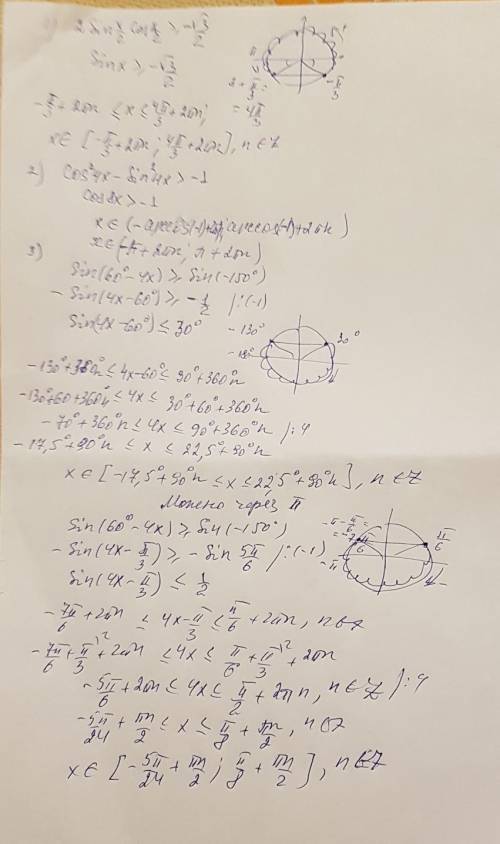 2 sin x/2 cos x/2 ≥ -√3/2
sin x ≥ -√3/2
-π/3 + 2πn ≤ x ≤ 4π/3 + 2πn;
π + π/3 = 4π/3
-π/3
x ∈ [-π/3 + 2πn; 4π/3 + 2πn], n ∈ Z
2) cos²4x - sin²4x > -1
cos8x > -1
x ∈ (-arccos(-1)+2πn; arccos(-1)+2πn)
x ∈ (-π + 2πn; π + 2πn)
3)
sin(60° - 4x) ≥ sin(-150°)
- sin(4x - 60°) ≥ -1/2 /:(-1)
sin(4x - 60°) ≤ 30°
-130° 30°
-180°
-130° + 360°n ≤ 4x - 60° ≤ 30° + 360°n
-130° + 60 + 360°n ≤ 4x ≤ 30° + 60° + 360°n
-70° + 360°n ≤ 4x ≤ 90° + 360°n /:4
-17,5° + 90°n ≤ x ≤ 22,5° + 90°n
x ∈ [-17,5° + 90°n ≤ x ≤ 22,5° + 90°n], n ∈ Z
Можно через π
sin(60° - 4x) ≥ sin(-150°)
- sin(4x - π/3) ≥ - sin 5π/6 /:(-1)
sin(4x - π/3) ≤ 1/2
-π - π/6 = = -7π/6 π/6
-π
-7π/6 + 2πn ≤ 4x - π/3 ≤ π/6 + 2πn, n ∈ Z
-7π/6 + π/3 + 2πn ≤ 4x ≤ π/6 + π/3 + 2πn
-5π/6 + 2πn ≤ 4x ≤ π/2 + 2πn, n ∈ Z /:4
-5π/24 + πn/2 ≤ x ≤ π/8 + πn/2, n ∈ Z
x ∈ [-5π/24 + πn/2; π/8 + πn/2], n ∈ Z